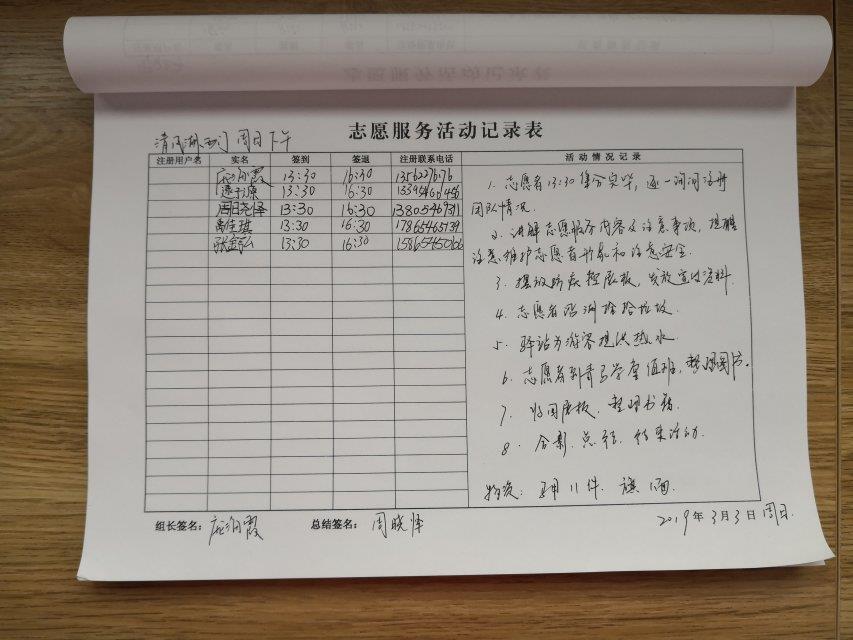 志愿服务活动记录表
清风湖西门 周日下午
注册用户名 实名 签到 签退 注册联系电话 活动情况记录
霞 13:30 16:30
13:30 16:30
周晓怿 13:30 16:30
13:30 16:30 17865465739
13:30 16:30
1. 志愿者13:30集合完毕，逐一询问注册
团队情况.
2. 讲解志愿服务内容及注意事项，提醒
注意维护志愿者形象和注意安全.
3. 摆放防疾控展板，发放宣传资料.
4. 志愿者沿湖捡拾垃圾.
5. 驿站为游客提供热水.
6. 志愿者到青马学堂值班，整理图书.
7. 收回展板、整理书籍.
8. 合影、总结、结束活动.
物资： 11件. 旗1面.
组长签名： 霞 总结签名： 周晓怿
2019年3月3日 周日.